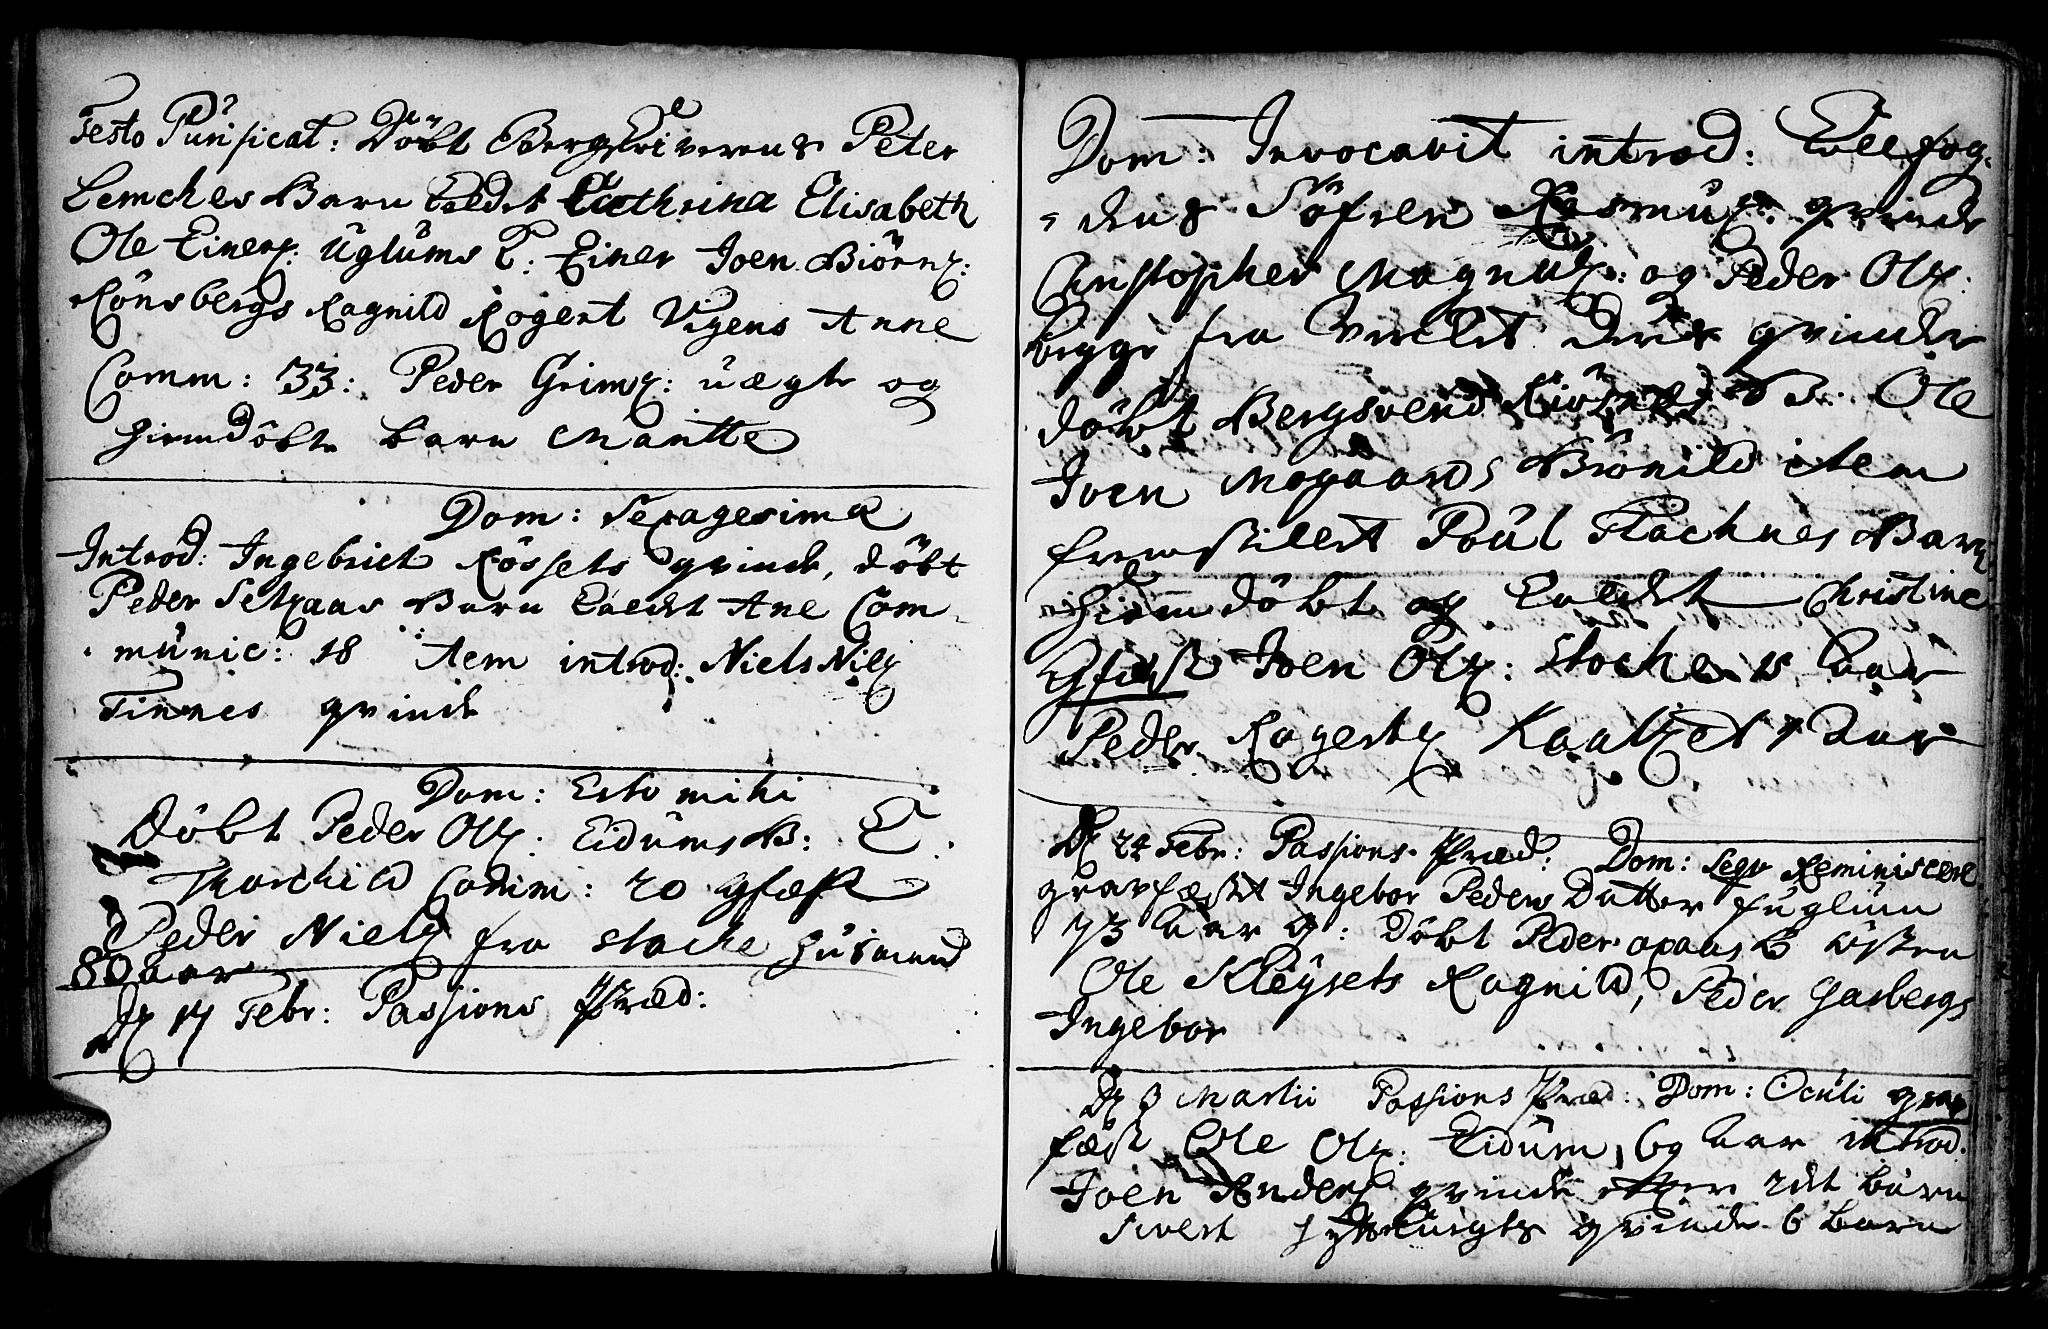 Festo Purificat: Döbt Bergskriverens Peter
Lemches Barn kaldet Cathrina Elisabeth
Ole Einerss: Uglums T: Einer Joen Biörnss:
Rönsbergs Ragnild Rogert Vigens Anne
Comm: 33: Peder Grimss: uægte og
hiemdöbte barn Maritte
Dom: Sexagesima
Introd: Ingebrict Rössets qvinde, döbt
Peder Setsaas Barn kaldet Ane Com-
munic: 18 Item introd: Niels Nilss
Finnes qvinde
Dom: Esto mihi
Döbt Peder Olss: Eidums B:
Thorchild Comm: 20 Gfæst
Peder Nielss fra Stocke huusmand
80 aar
D 17 Febr: Passions Præd:
Dom: Invocavit introd: Kullfog-
dens Söfren Rasmuss: qvinde
Christopher Magnuss: og Peder Olss:
begge fra Værket Deres qvinder
döbt Bergsvend B: Ole
Joen Mogaards Brönild item
fremstillet Poul Flachnes Barn
hiemdöbt og kaldet Christine
Gfæst Joen Olss: Stocke 15 Aar
Peder Rogertss Kaalsset 7 Aar
D 24 Febr: Passions Præd: Dom: Reminiscere
gravfæstet Ingebor Peders Datter Fuglum
73 Aar g: Döbt Peder Östen
Ole Kleysets Ragnild, Peder Garbergs
Ingebor
D 3 Martii Passions Præd: Dom: Oculi grav
fæst Ole Olss: Eidum, 69 Aar introd:
Joen Anderss qvinde 2det barn
Sivert qvinde 6 barn